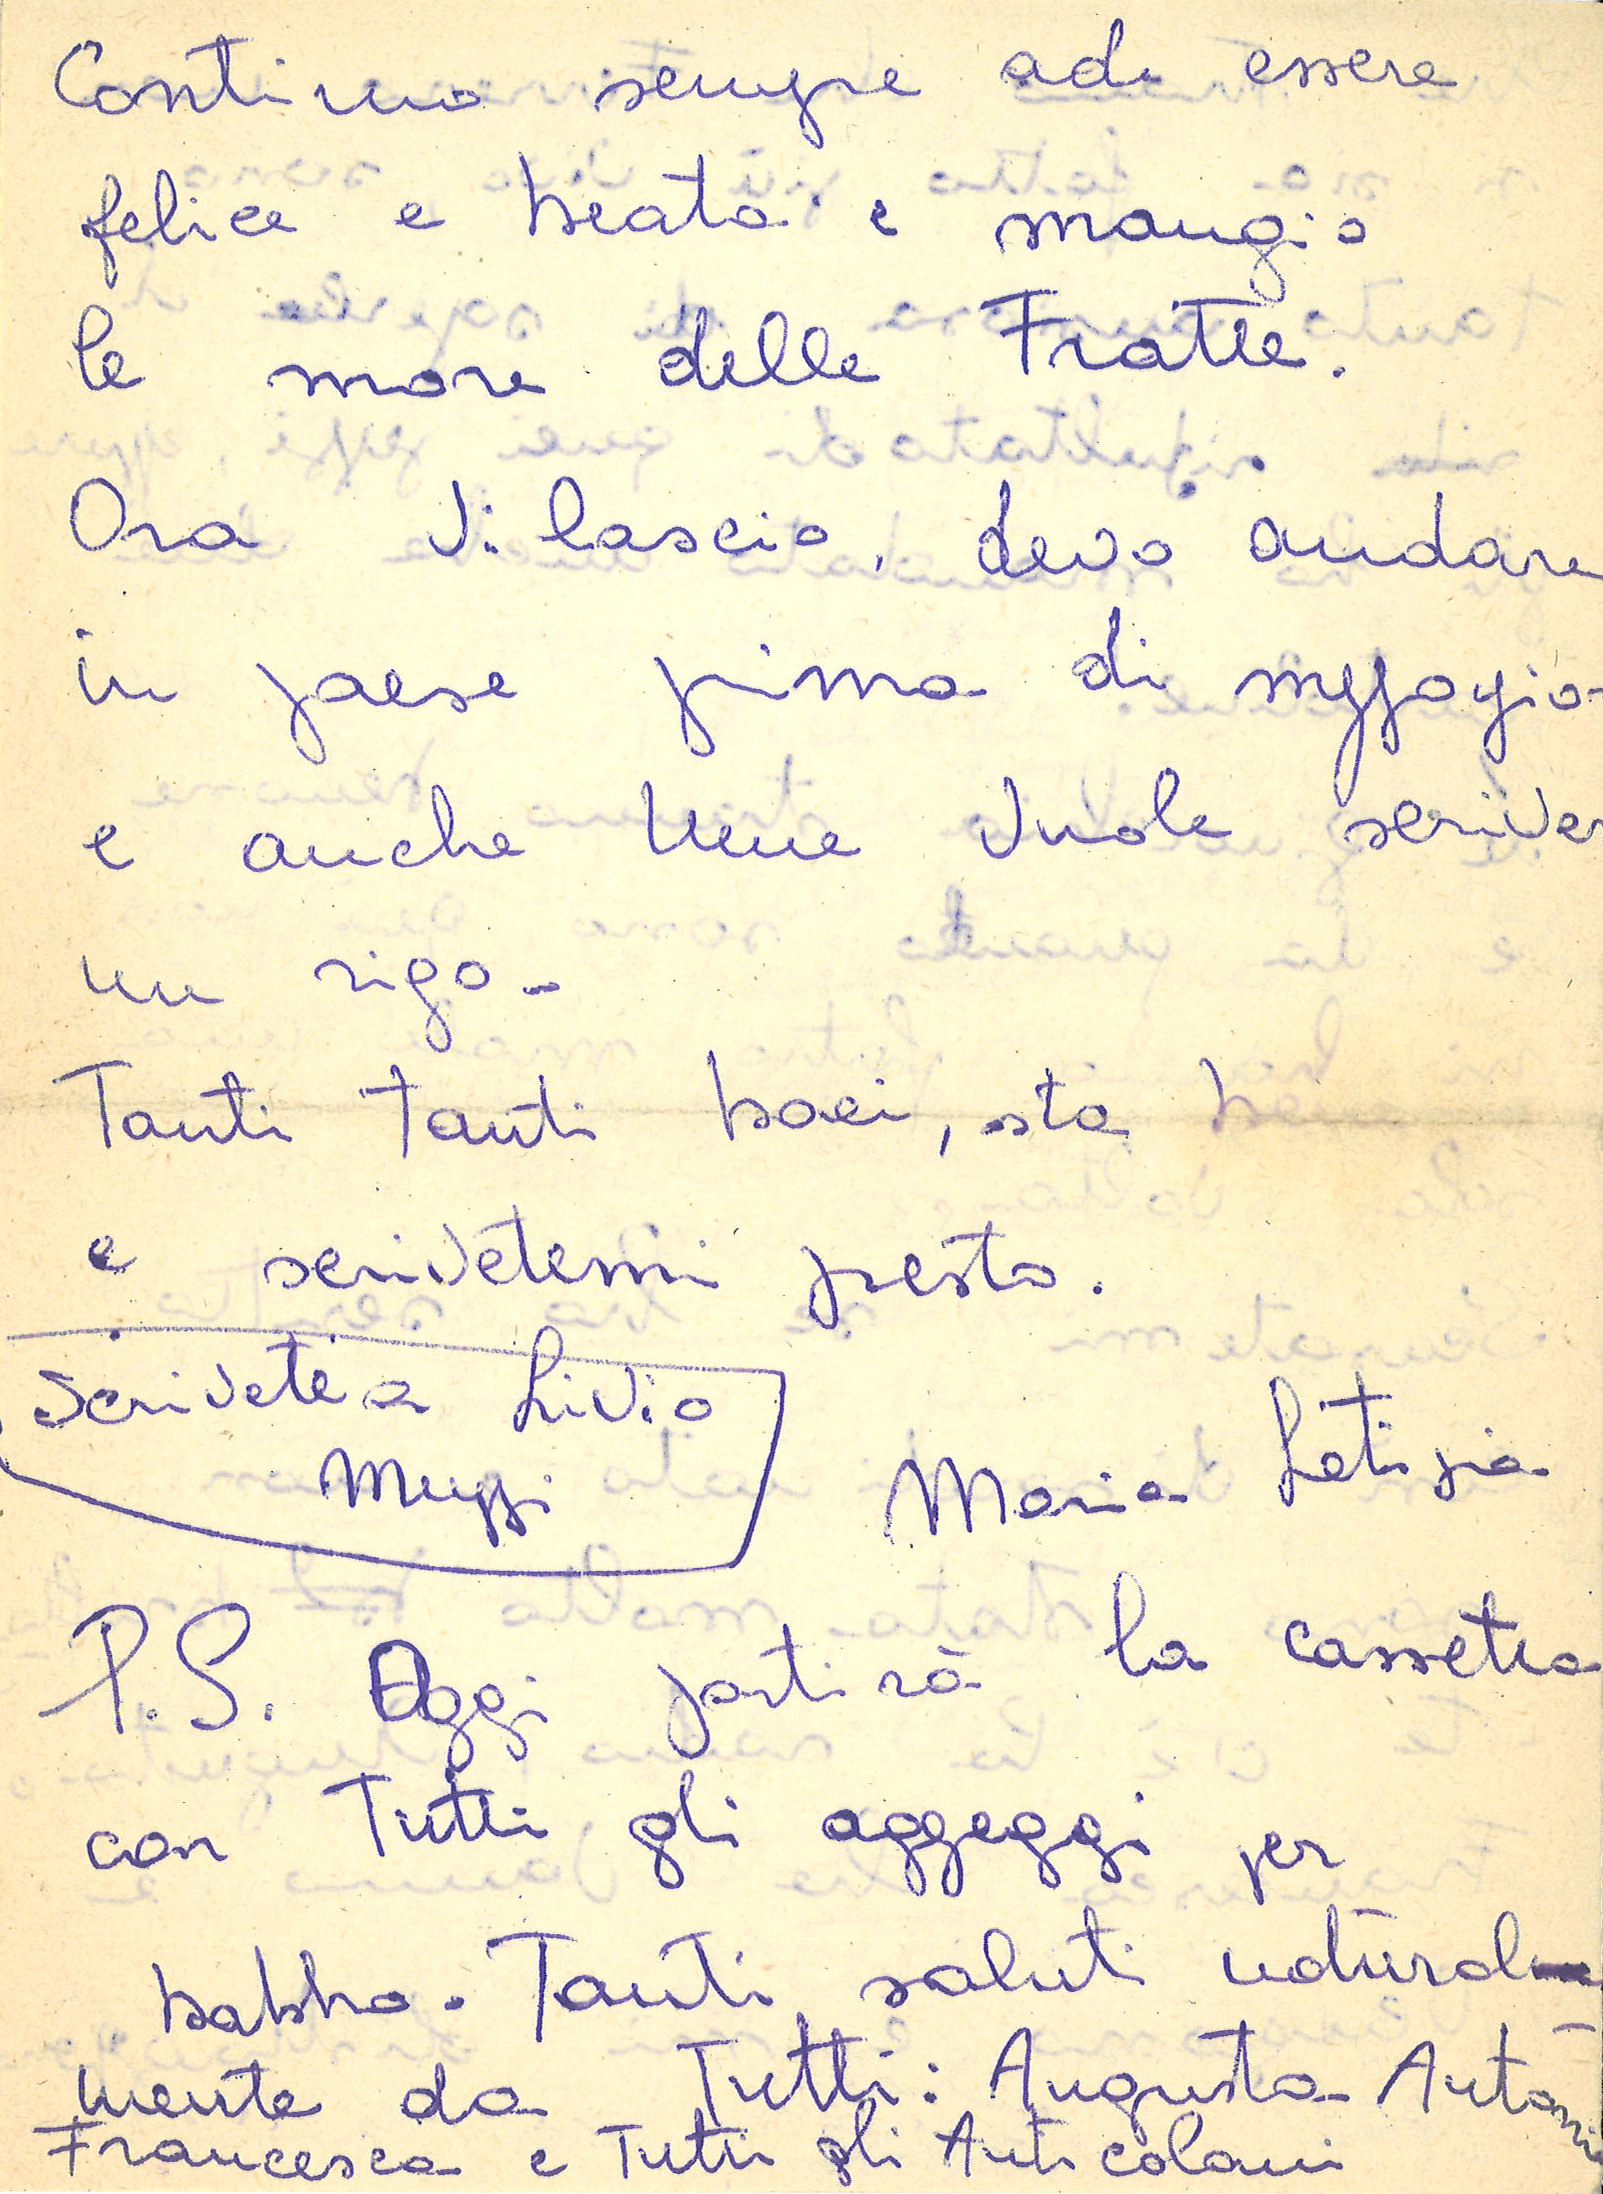 Continuo sempre ad essere
felice e beata e mangio
le more delle Fratte.
Ora Vi lascio, devo andare
in paese prima di mezzogio-
e anche Nene vuole scriver
un rigo -
Tanti Tanti baci, sta bene
e scrivetemi presto.
Scrivete a Livio
Muzzi
Maria Letizia
P.S. Oggi partirà la cassetta
con Tutti gli aggeggi per
babbo. Tanti saluti natural-
mente da Tutti: Augusta Anton
Francesca e Tutti gli Anticolani